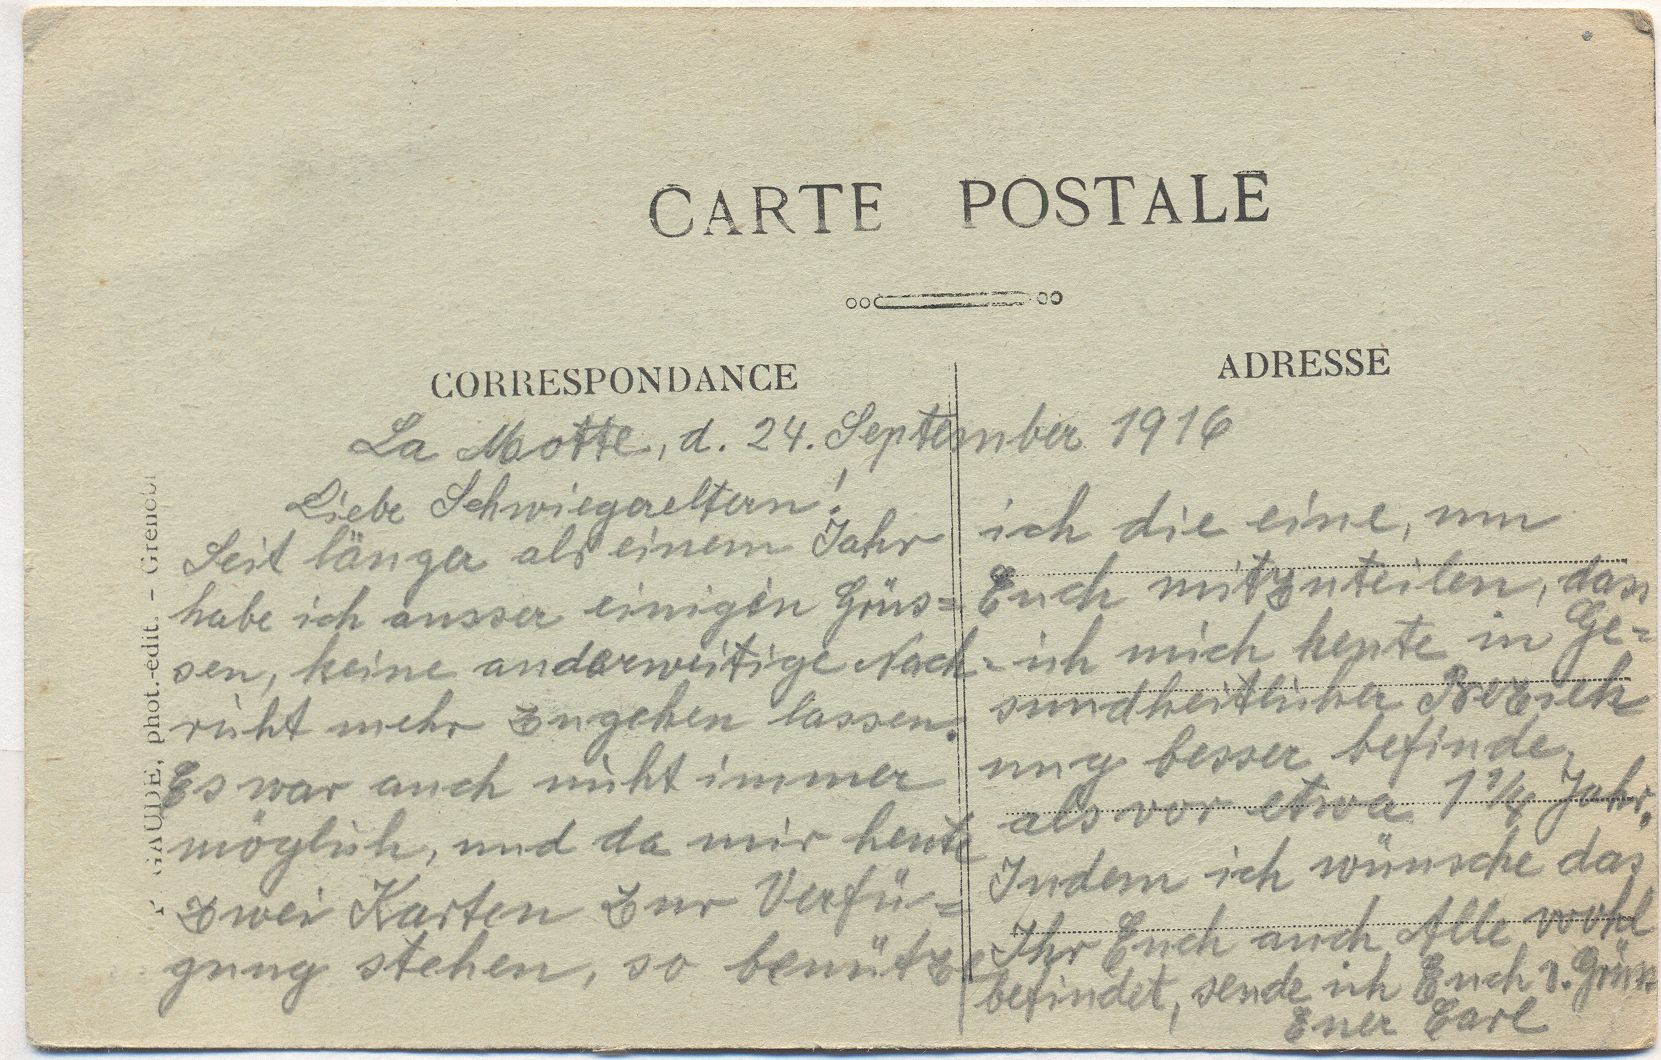 CARTE POSTALE
CORRESPONDANCE
ADRESSE
GAUDE, phot.-edit. - Grenobl
La Motte, d. 24. September 1916
Liebe Schwiegereltern!
Seit länger als einem Jahr
habe ich ausser einigen Grüs=
sen, keine anderweitige Nach-
richt mehr zugehen lassen.
Es war auch nicht immer
möglich, und da mir heute
zwei Karten zur Verfü=
gung stehen, so benütze
ich die eine, um
Euch mitzuteilen, dass
ich mich heute in Ge=
sundheitlicher Bezieh
ung besser befinde,
als vor etwa 1 1/4 Jahr.
Indem ich wünsche das
Ihr Euch auch Alle wohl
befindet, sende ich Euch v. Grüsse
Euer Carl